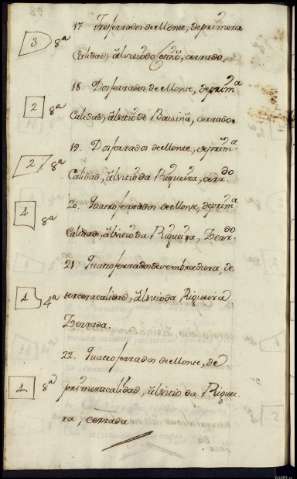 17 Tres ferrados de Monte, de primera
3 8ª calidad, al sitio do cerrado.
18. Dos ferrados de Monte, de prim.ª
2 8ª Calidad, al sitio de cerrado.
19. Dos ferrados de Monte, de prim.ª
2 8ª Calidad, al sitio da Riqueira,
20. Quatro ferrados de Monte, de prim.ª
4 8ª Calidad, al sitio da Riqueira, Zerr.do
21. Quatro ferrados de sembradura, de
4 4ª tercera calidad, al sitio da Riqueira
Zerrada.
22. Quatro ferrados de Monte, de
4 8ª primera calidad, al sitio da Riquei-
ra, cerrada